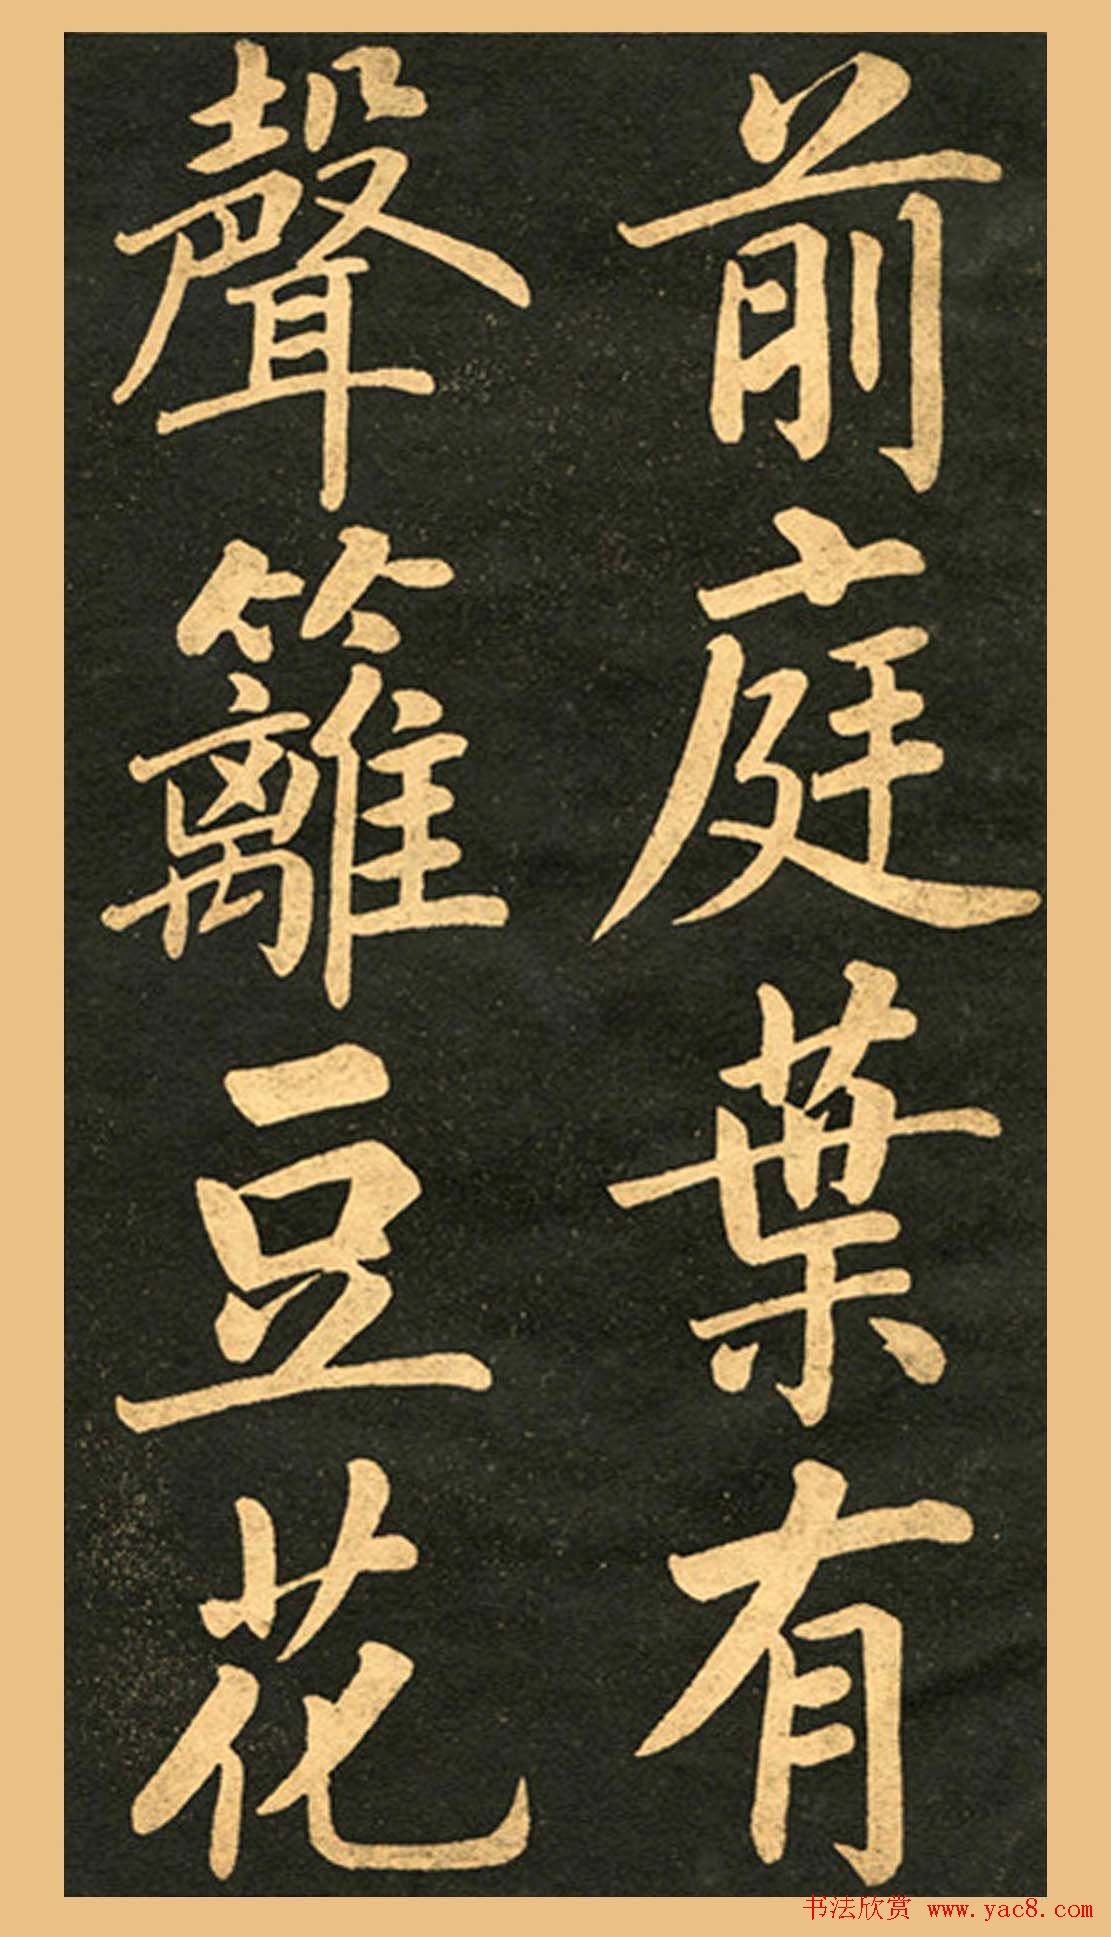 前庭葉有
聲籬豆花
书法欣赏 www.yac8.com